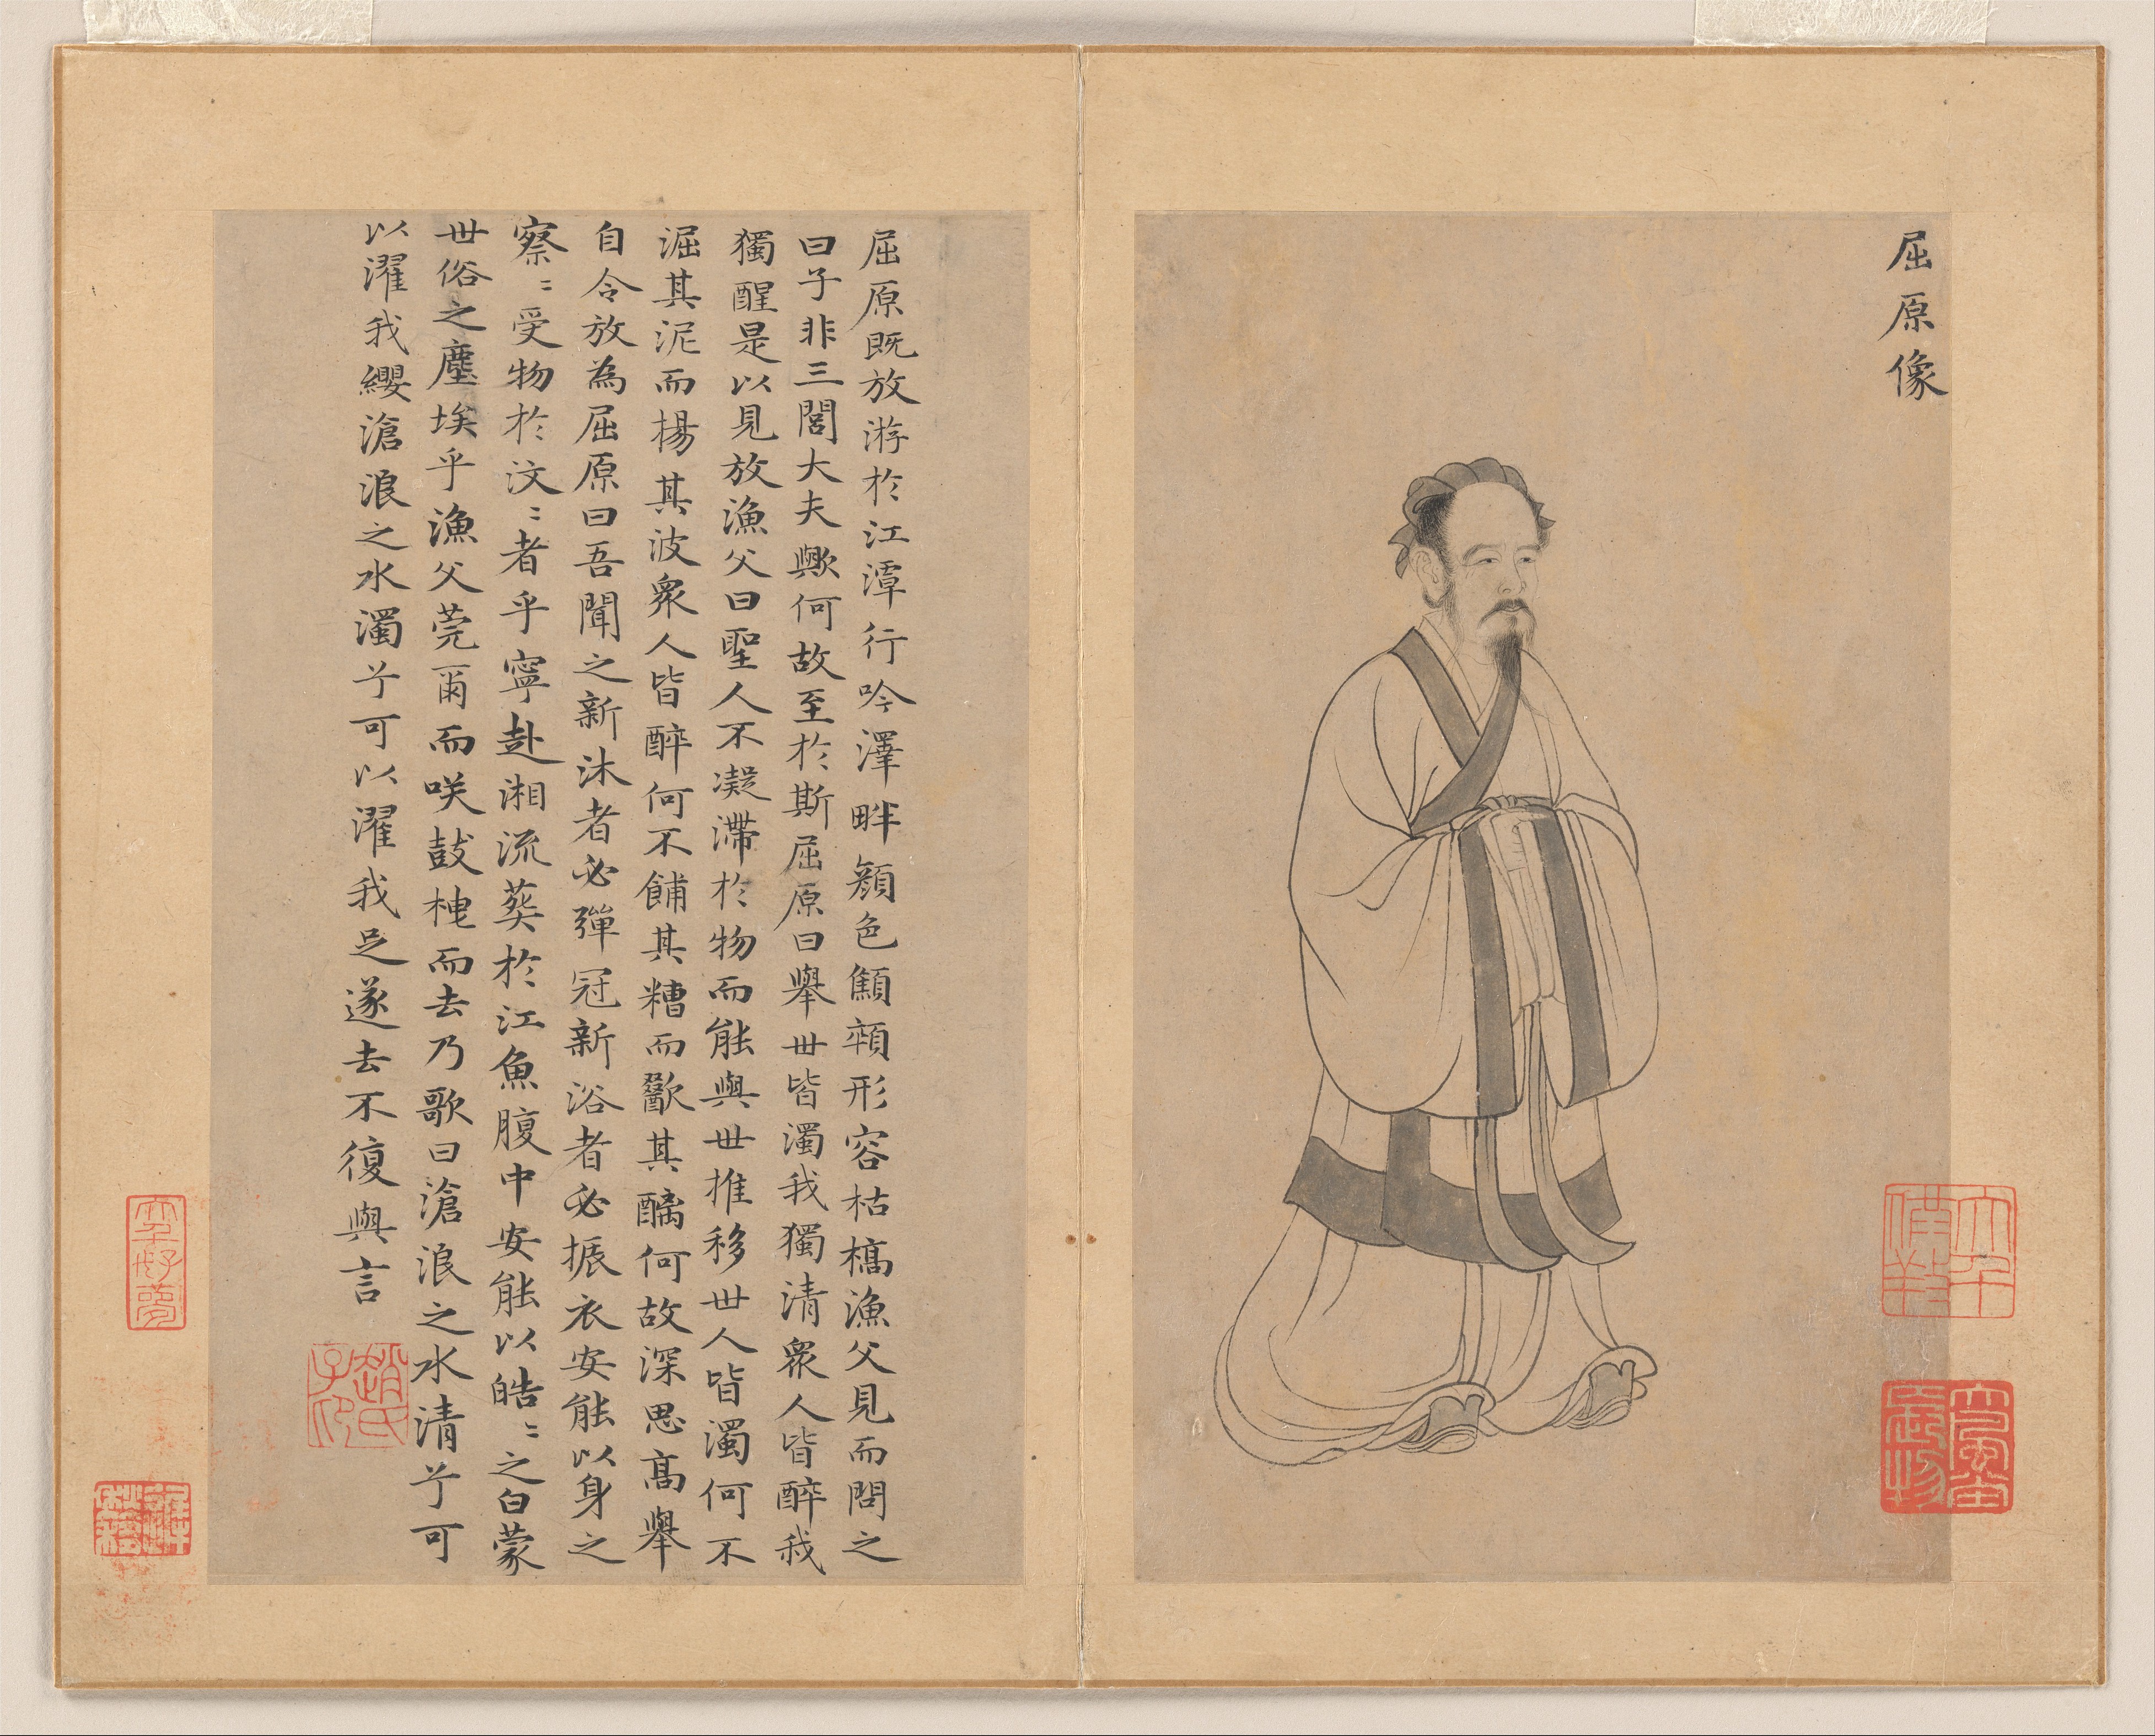 屈原像
屈原既放游於江潭行吟澤畔顏色顦顇形容枯槁漁父見而問之
曰子非三閭大夫歟何故至於斯屈原曰舉世皆濁我獨清衆人皆醉我
獨醒是以見放漁父曰聖人不凝滯於物而能與世推移世人皆濁何不
淈其泥而楊其波衆人皆醉何不餔其糟而歠其醨何故深思高舉
自令放為屈原曰吾聞之新沐者必彈冠新浴者必振衣安能以身之
察〻受物於汶〻者乎寧赴湘流葬於江魚腹中安能以皓〻之白蒙
世俗之塵埃乎漁父莞爾而咲鼓枻而去乃歌曰滄浪之水清兮可
以濯我纓滄浪之水濁兮可以濯我足遂去不復與言
趙氏子印